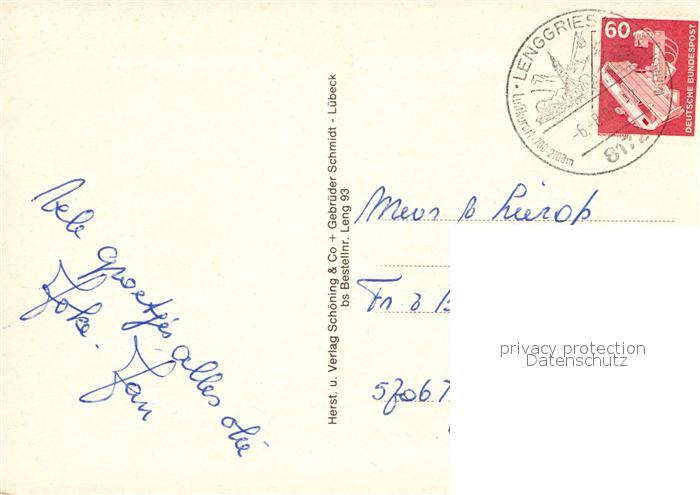 Vele groetjes alles oke
Joke. Jan
Herst. u. Verlag Schöning & Co + Gebrüder Schmidt - Lübeck
bs Bestellnr. Leng 93
LENGGRIES
Luftkurort · 700-2100m
60
DEUTSCHE BUNDESPOST
Mevr
5706
privacy protection
Datenschutz